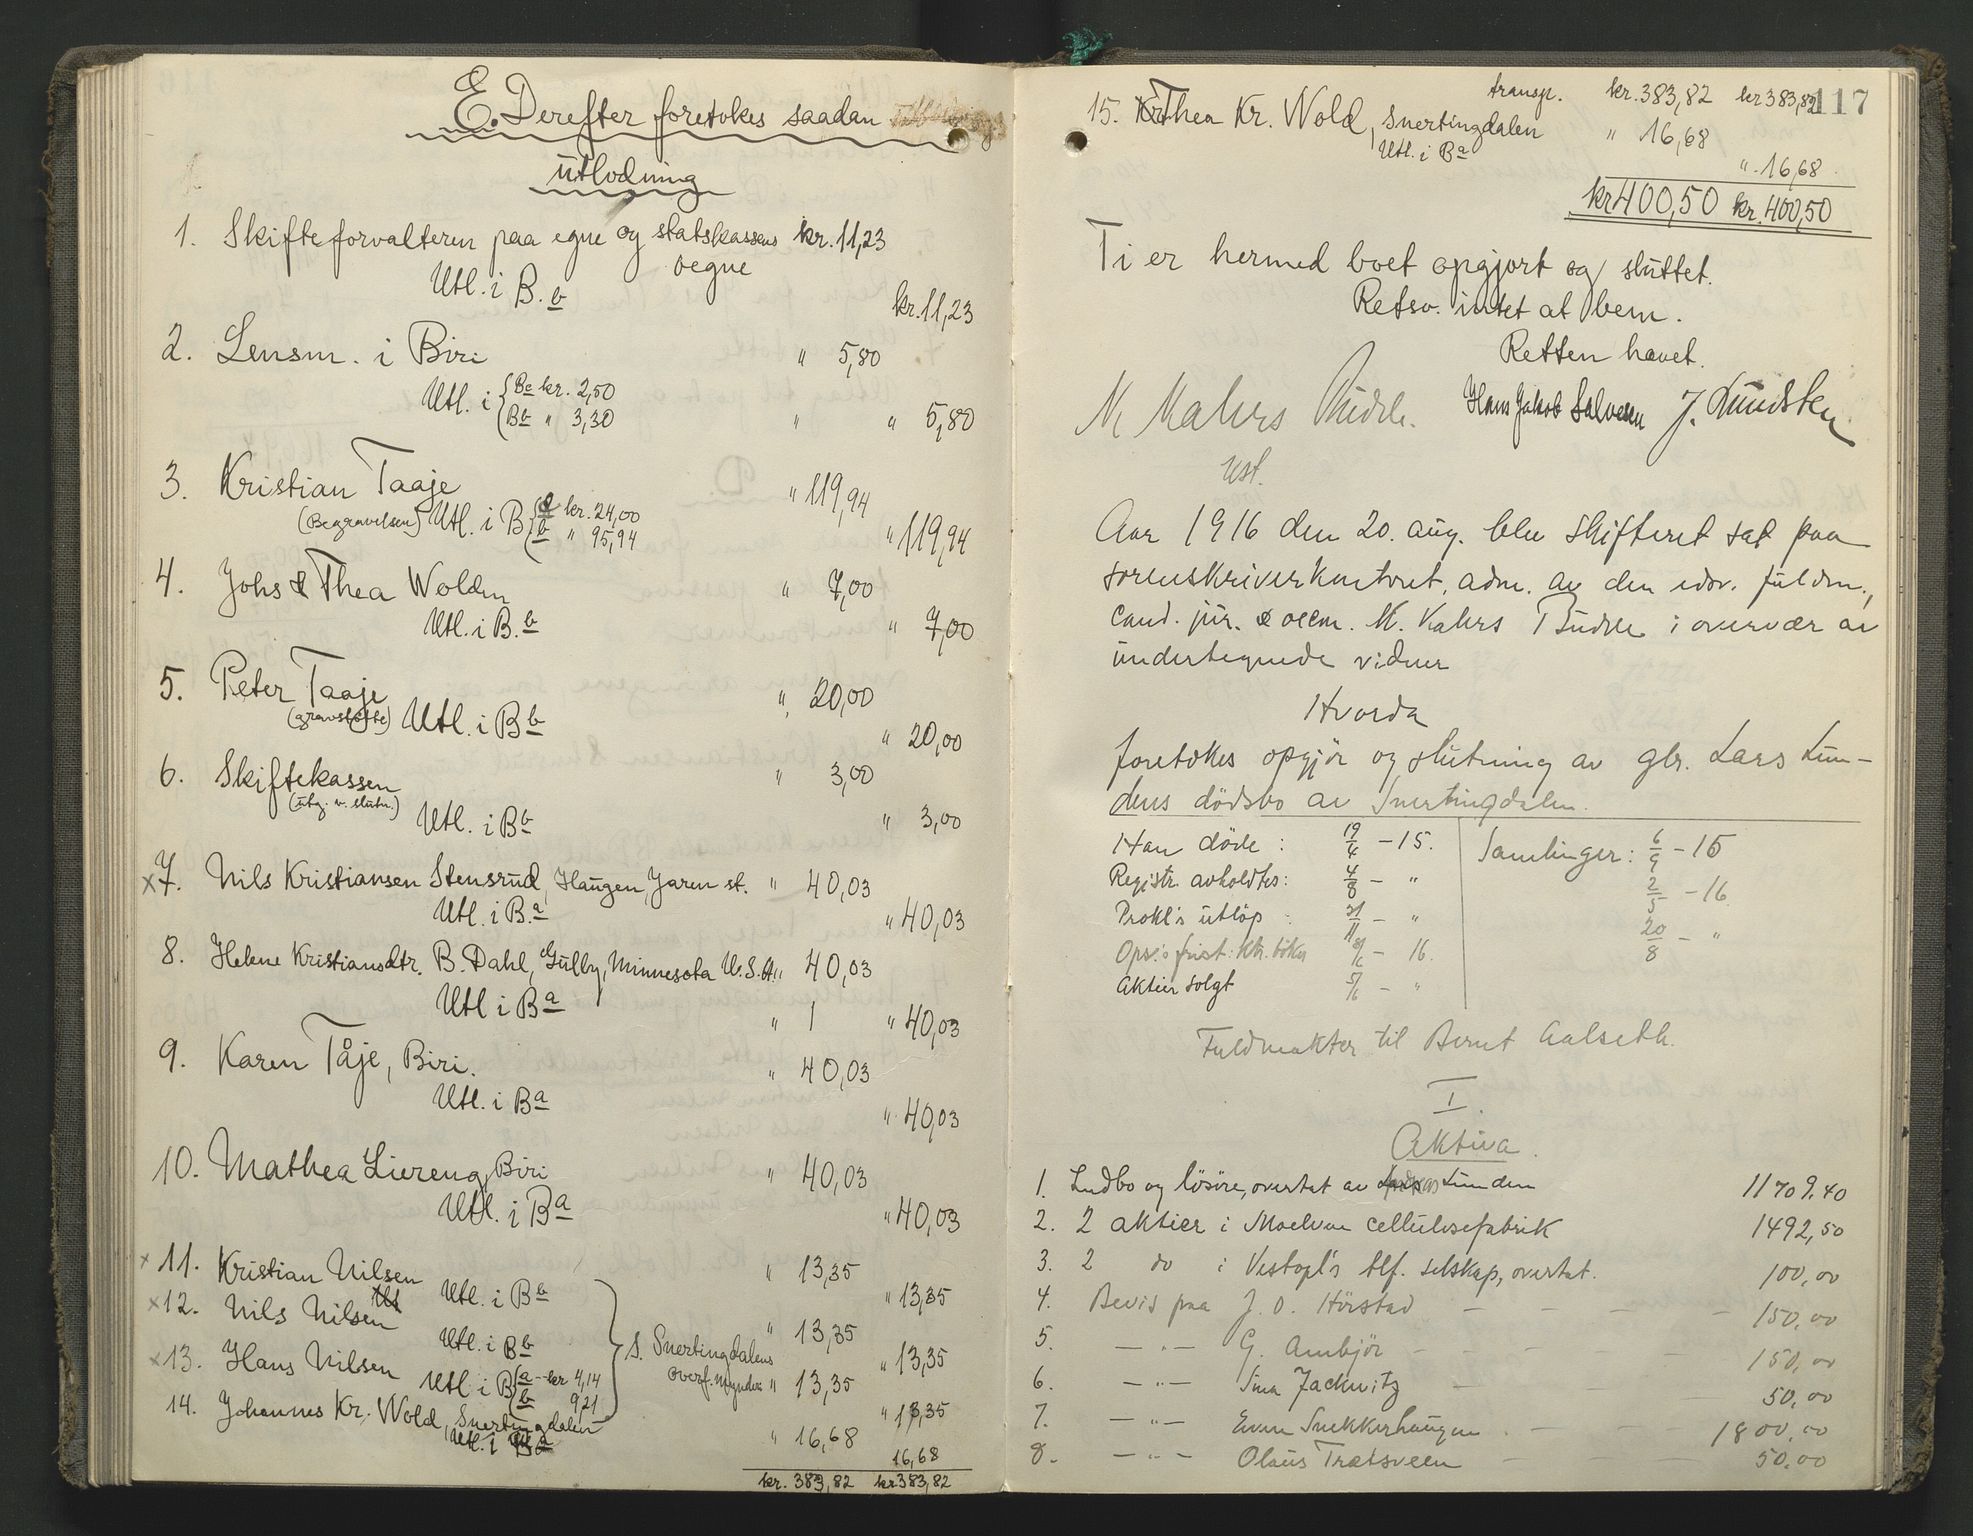 E. Derefter foretokes saadan
utlodning
1. Skifteforvalteren paa egne og statskassens kr. 11,23
vegne
Utl. i B. b
kr. 11,23
2. Lensm. i Biri " 5,80
Utl. i { Ba kr. 2,50
Bb " 3,30 " " 5,80
3. Kristian Taaje " 119,94
(Begravelsen) Utl. i B { a kr. 24,00
b " 95,94 " 119,94
4. Johs & Thea Wolden " 7,00
Utl. i B. b " 7,00
5. Peter Taaje " 20,00
(gravstötte) Utl. i Bb " 20,00
6. Skiftekassen " 3,00
(utg. v. slutn.) Utl. i Bb " 3,00
x7. Nils Kristiansen Stensrud, Haugen, Jaren st. " 40,03
Utl. i B. a " 40,03
8. Helene Kristiansdtr. B. Dahl, Gully, Minnesota U. S. A. " 40,03
Utl i Ba " 1 " 40,03
9. Karen Tåje, Biri. " 40,03
Utl. i Ba " 40,03
10. Mathea Liereng, Biri " 40,03
Utl. i Ba " 40,03
x11. Kristian Nilsen " 13,35
Utl. i Bb " 13,35
x12. Nils Nilsen " 13,35
Utl. i Bb " 13,35
S. Snertingdalens
overf.mynderi
x13. Hans Nilsen " 13,35
Utl i B { a -- kr 4,14
b 9,21 " 13,35
14. Johannes Kr. Wold, Snertingdalen " 16,68
Utl. i Ba 16,68
kr. 383,82 kr 383,82
117
transp. kr. 383,82 kr 383,82
15. Thea Kr. Wold, Snertingdalen " 16,68
Utl. i Ba " 16,68
kr 400,50 kr. 400,50
Ti er hermed boet opgjort og sluttet.
Retsv. intet at bem.
Retten hævet.
M Kahrs Budde. Hans Jakob Salvesen J. Lundsten
Ust.
Aar 1916 den 20. aug. blev skifteret sat paa
sorenskriverkontoret, adm. av den edsv. fuldm.,
cand. jur. & oecon. M. Kahrs Budde i overvær av
undertegnede vidner
Hvorda
foretokes opgjör og slutning av gbr. Lars Lun-
dens dödsbo av Snertingdalen.
Han döde : 19/4 - 15. Samlinger: 6/9 - 15
Registr. avholdtes: 4/8 - " 2/5 - 16.
Prokl's utlöp : 21/11 - " 20/8 - "
Aktier solgt 5/6 - "
Fuldmakter til Bernt Aalseth.
I.
Aktiva.
1. Indbo og lösöre, overtat av Lunden 11709,40
2. 2 aktier i Moelven cellulosefabrik 1492,50
3. 2 do i Vestopl's tlf. selskap, overtat. 100,00
4. Bevis paa J. O. Hörstad - - - - 150,00
5. - " - G. Ambjör - - - - 150,00
6. - " - Sina Jacknitz - - - 50,00
7. - " - Even Snekkerhaugen - - - 1800,00
8. - " - Olaus Trætsveen - - - 50,00